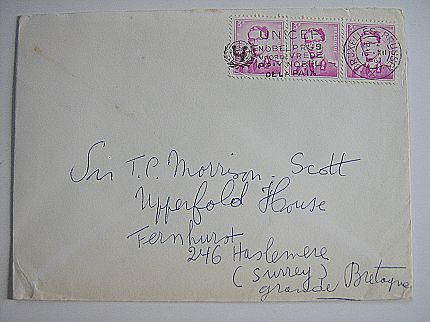 UNICEF
NOBELPRIJS
VOOR DE VREDE
PRIX NOBEL
DE LA PAIX
BRUXELLES BRUSSEL
XII
Sir T.P. Morrison. Scott
Upperfold House
Fernhurst
246 Haslemere
(Surrey)
Grande Bretagne